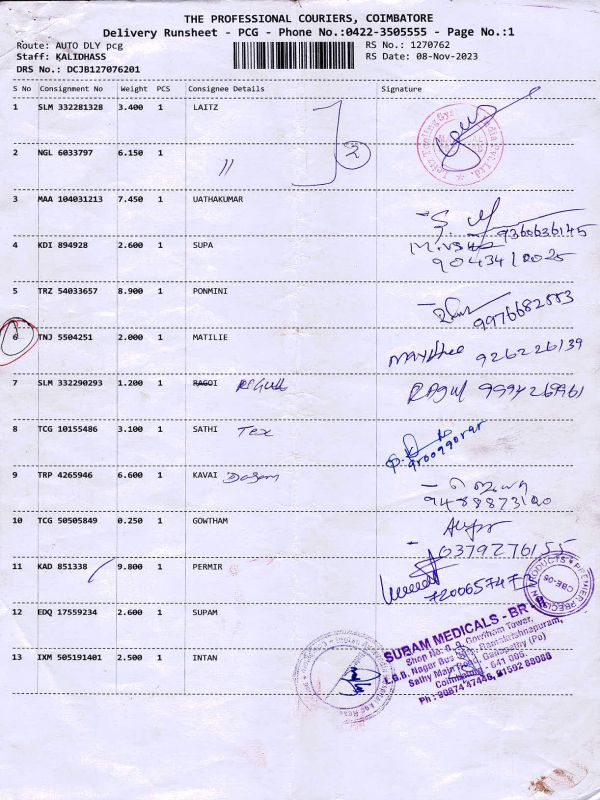 THE PROFESSIONAL COURIERS, COIMBATORE
Delivery Runsheet - PCG - Phone No.:0422-3505555 - Page No.:1
Route: AUTO DLY pcg RS No.: 1270762
Staff: KALIDHASS RS Date: 08-Nov-2023
DRS No.: DCJB127076201
S No Consignment No Weight PCS Consignee Details Signature
1 SLM 332281328 3.400 1 LAITZ
2
2 NGL 6033797 6.150 1 "
3 MAA 104031213 7.450 1 UATHAKUMAR
9360636145
4 KDI 894928 2.600 1 SUPA
9043410025
5 TRZ 54033657 8.900 1 PONMINI
9976682553
6 TNJ 5504251 2.000 1 MATILIE
926226139
7 SLM 332290293 1.200 1 RAGOI RAGUL Ragul
8 TCG 10155486 3.100 1 SATHI Tex
9 TRP 4265946 6.600 1 KAVAI
10 TCG 50505849 0.250 1 GOWTHAM
6379276155
11 KAD 851338 9.800 1 PERMIR
PREMIER PRECISION PRODUCTS
CBE-06
12 EDQ 17559234 2.600 1 SUPAM
SUBAM MEDICALS - BR - II
Shop No: 0.9, Gowtham Tower,
L.G.B. Nagar Bus Stop, Ramakrishnapuram,
Sathy Main Road, Ganapathy (Po)
Coimbatore - 641 006.
13 IXM 505191401 2.500 1 INTAN